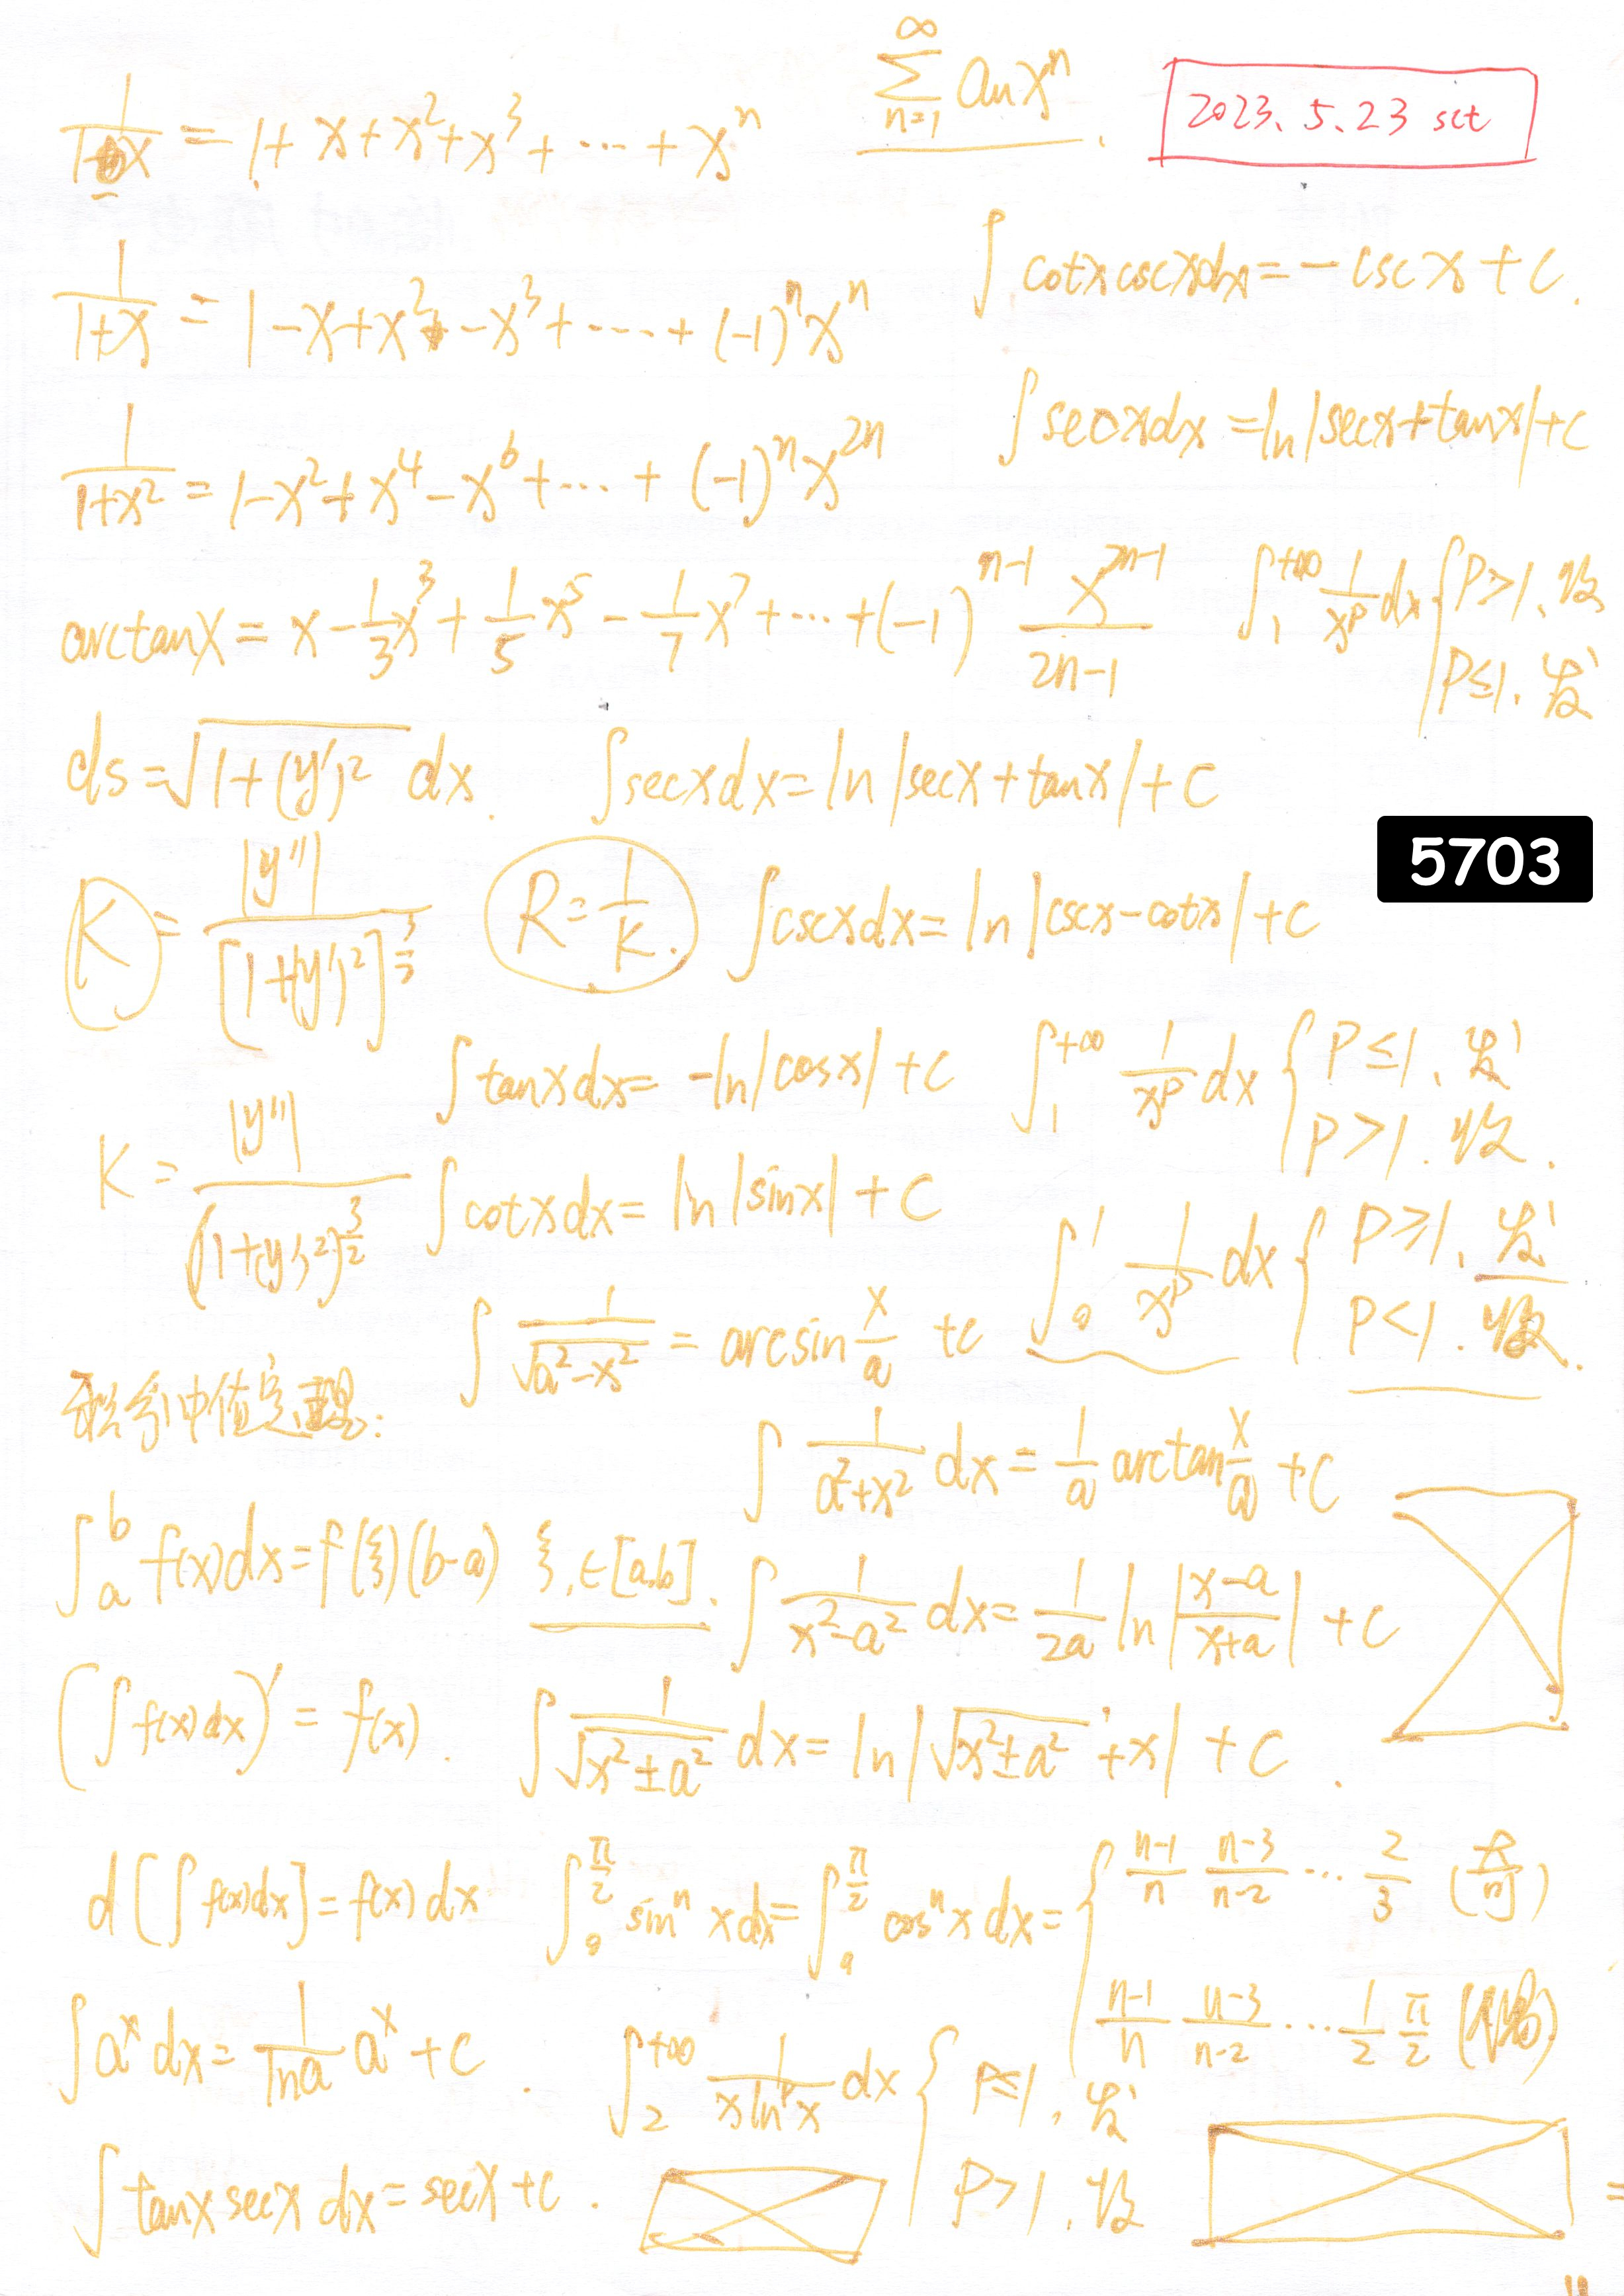 1/(1-x) = 1+x+x²+x³+⋯+xⁿ
∑_{n=1}^{∞} aₙxⁿ.
2023.5.23 sct
1/(1+x) = 1-x+x²-x³+⋯+(-1)ⁿxⁿ
∫cotxcscxdx=-cscx+c.
∫secxdx=ln|secx+tanx|+c
1/(1+x²) = 1-x²+x⁴-x⁶+⋯+(-1)ⁿx²ⁿ
arctanx=x-1/3x³+1/5x⁵-1/7x⁷+⋯+(-1)ⁿ⁻¹ x²ⁿ⁻¹/(2n-1)
∫₁^{+∞} 1/x^p dx { P>1.收
P≤1.发
ds=√(1+(y')²) dx.
∫secxdx=ln|secx+tanx|+c
5703
K=|y''|/[1+(y')²]^{3/2}
R=1/K.
∫cscxdx=ln|cscx-cotx|+c
∫tanxdx=-ln|cosx|+c
∫₁^{+∞} 1/x^p dx { P≤1.发
P>1.收.
K=|y''|/(1+(y')²)^{3/2}
∫cotxdx=ln|sinx|+c
∫₀¹ 1/x^p dx { P≥1.发
P<1.收.
∫1/√(a²-x²) = arcsin x/a +c
积分中值定理:
∫1/(a²+x²) dx=1/a arctan x/a +c
∫ₐᵇ f(x)dx=f(ξ)(b-a) ξ.∈[a,b].
∫1/(x²-a²) dx=1/2a ln|(x-a)/(x+a)|+c
(∫f(x)dx)'=f(x).
∫1/√(x²±a²) dx=ln|√(x²±a²)+x|+c.
d[∫f(x)dx]=f(x)dx
∫₀^{π/2} sinⁿxdx=∫₀^{π/2} cosⁿxdx={ (n-1)/n (n-3)/(n-2) ⋯ 2/3 (奇)
(n-1)/n (n-3)/(n-2) ⋯ 1/2 π/2 (偶)
∫aˣdx=1/lna aˣ+c.
∫₂^{+∞} 1/(xln^p x) dx { P≤1.发
P>1.收
∫tanxsecxdx=secx+c.